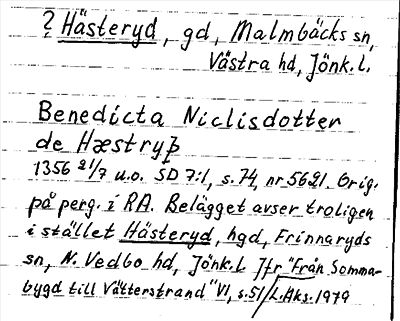 ? Hästeryd, gd, Malmbäcks sn,
Västra hd, Jönk.l.
Benedicta Niclisdotter
de Hæstryþ
1356 21/7 u.o. SD 7:1, s.74, nr 5621. Orig.
på perg. i RA. Belägget avser troligen
i stället Hästeryd, hgd, Frinnaryds
sn, N. Vedbo hd, Jönk.l Jfr "Från Somma-
bygd till Vätterstrand" VI, s.51/L.Aks. 1979